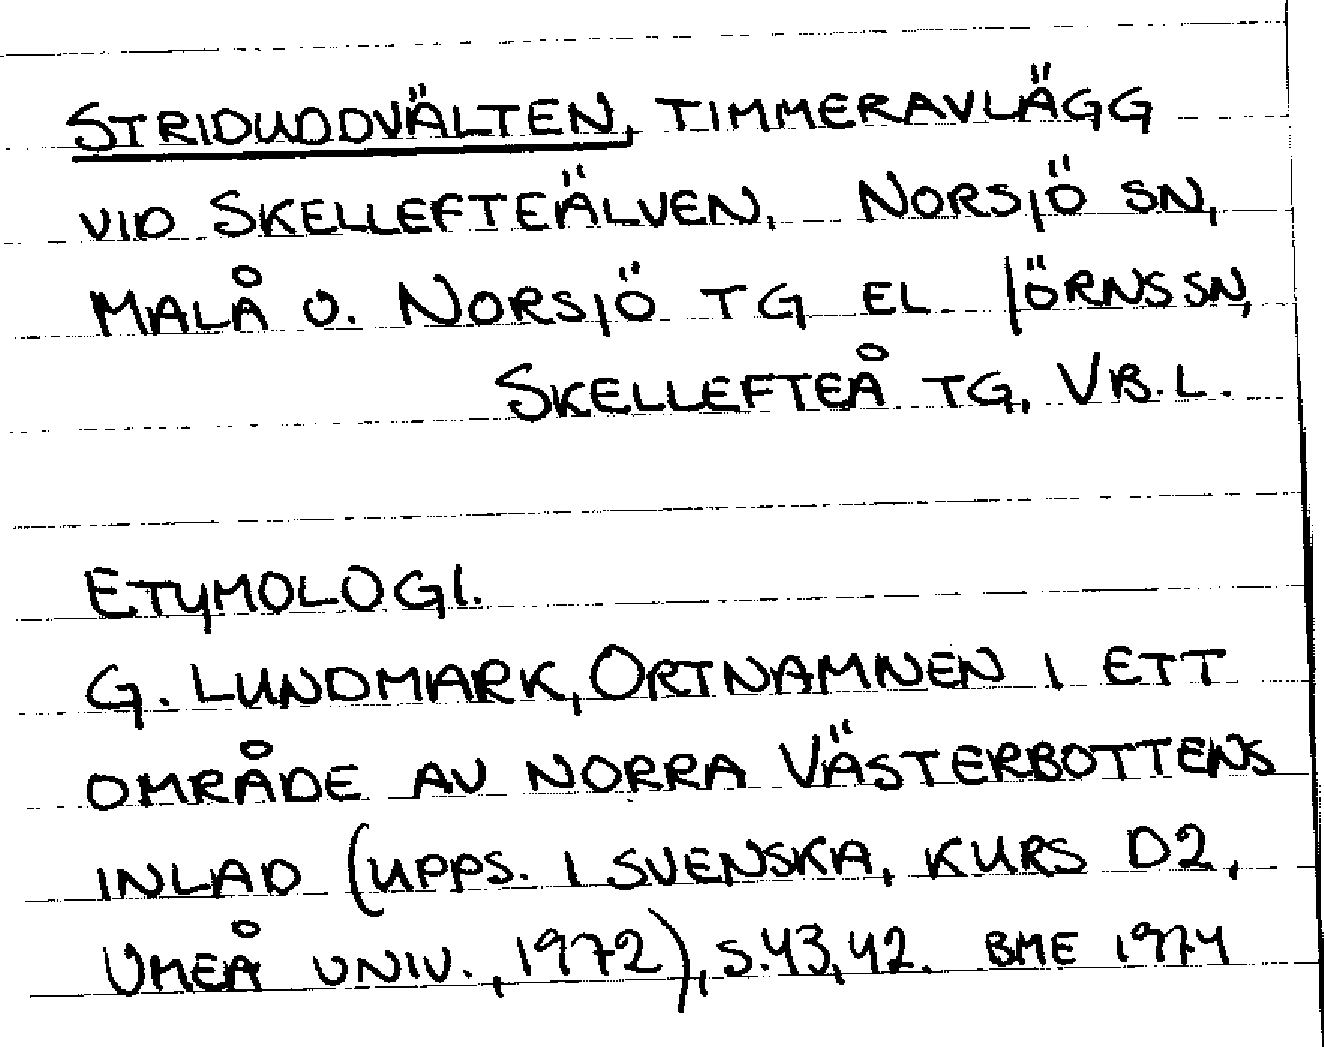 STRIDUDDVÄLTEN, TIMMERAVLÄGG
VID SKELLEFTEÄLVEN, NORSJÖ SN,
MALÅ O. NORSJÖ TG EL JÖRNS SN,
SKELLEFTEÅ TG, VB. L.
ETYMOLOGI.
G. LUNDMARK, ORTNAMNEN I ETT
OMRÅDE AV NORRA VÄSTERBOTTENS
INLAD (UPPS. I SVENSKA, KURS D2,
UMEÅ UNIV., 1972), S. 43, 42. BME 1974